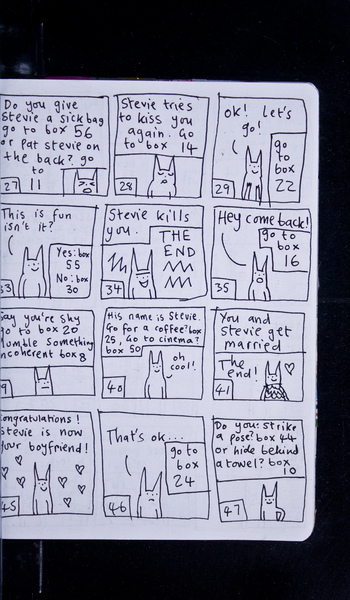 Do you give
Stevie a sick bag
go to box 56
or pat stevie on
the back? go
to
11
27
Stevie tries
to kiss you
again. Go
to box 14
28
ok! Let's
go!
go
to
box
22
29
This is fun
isn't it?
Yes: box
55
No: box
30
33
Stevie kills
you.
THE
END
34
Hey come back!
go to
box
16
35
Say you're shy
go to box 20
Mumble something
incoherent box 8
9
His name is Stevie.
Go for a coffee? box
25, Go to cinema?
box 50
oh
cool!
40
You and
stevie get
married
The
end!
41
Congratulations!
Stevie is now
your boyfriend!
45
That's ok...
go to
box
24
46
Do you: strike
a pose? box 44
or hide behind
a towel? box
10
47